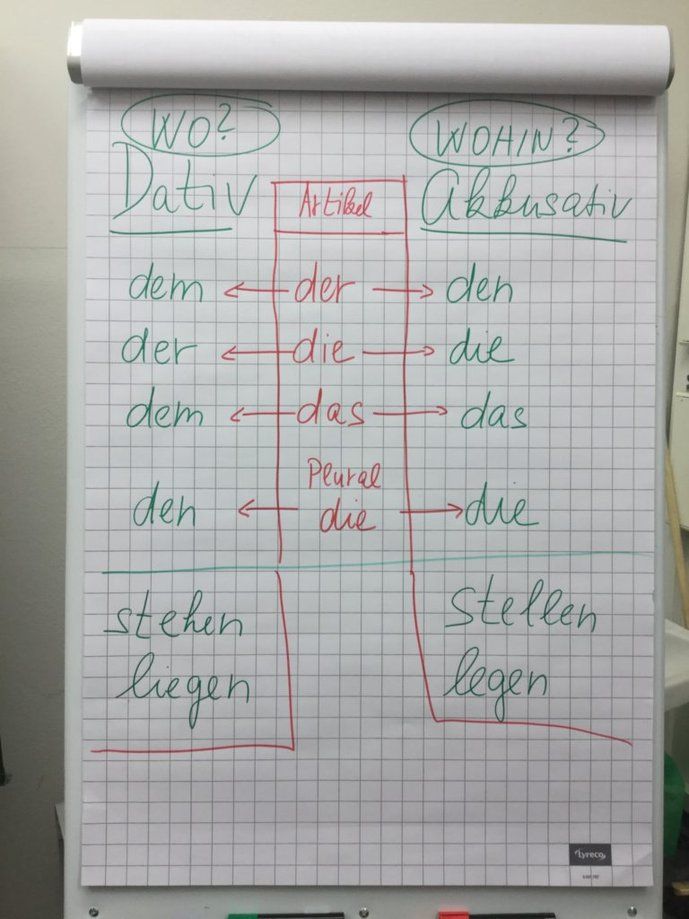 WO? WOHIN?
Dativ Artikel Akkusativ
dem der den
der die die
dem das das
Plural
den die die
stehen stellen
liegen legen
lyreco